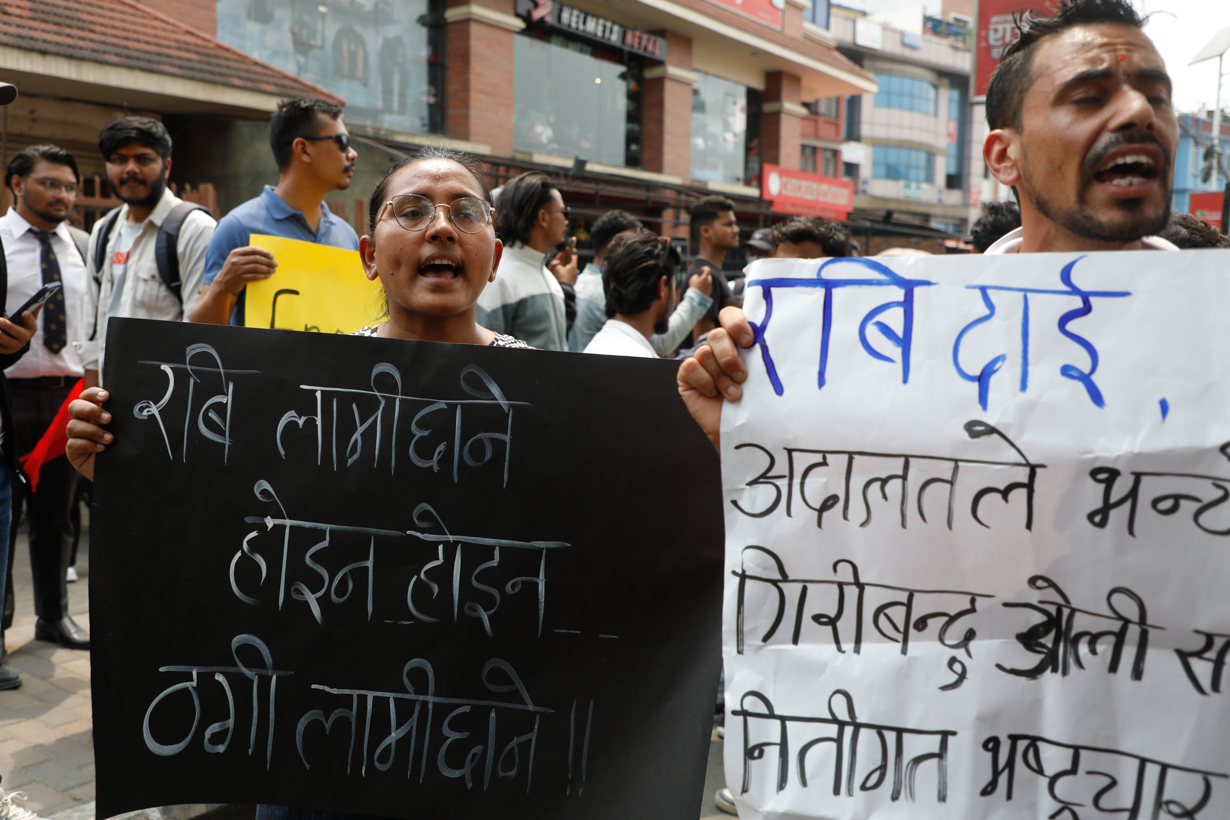 HELMETS NEPAL
रबि लामीछाने
होइन होइन
ठगी लामीछाने !!
रबि दाई ,
अदालतले
गिरीबन्दु ओली
नितीगत भष्ट्रचार